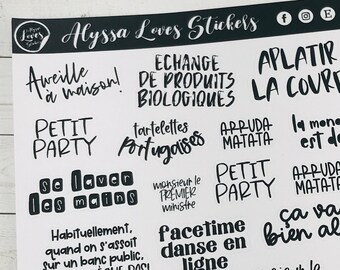 Alyssa Loves Stickers
Aweille
à maison!
ECHANGE
DE PRODUITS
BIOLOGIQUES
APLATIR
LA COURB
PETIT
PARTY
tartelettes
portugaises
ARRUDA
MATATA
la mond
est de
se laver
les mains
monsieur le
PREMIER
ministre
PETIT
PARTY
ARRUDA
MATATA
Habituellement,
quand on s'assoit
sur un banc public,
facetime
danse en
ligne
ça va
bien al